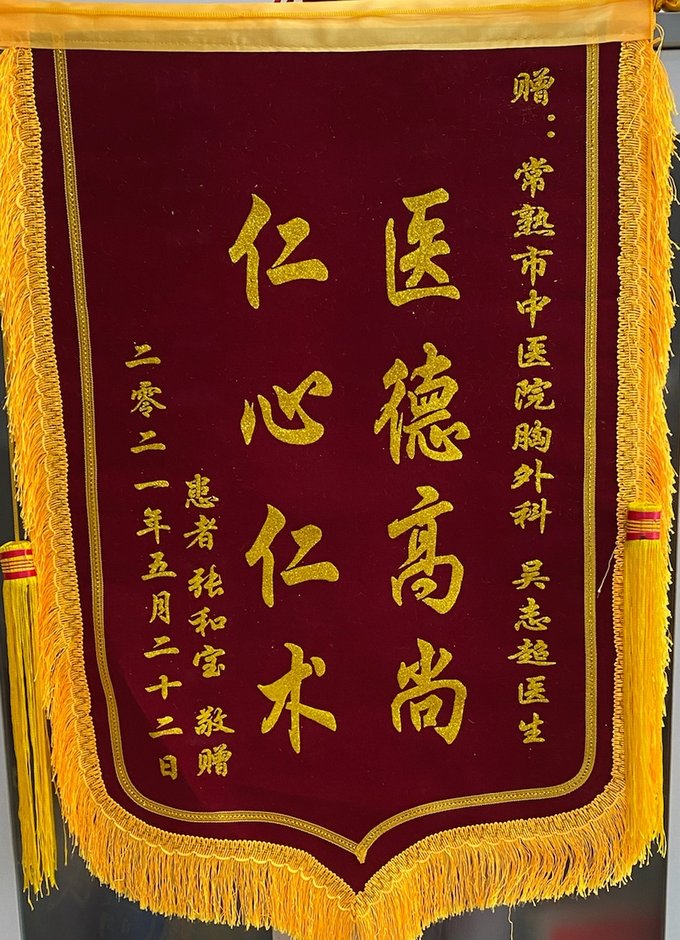 赠：常熟市中医院胸外科 吴志超医生
医德高尚
仁心仁术
患者张和宝 敬赠
二零二一年五月二十二日